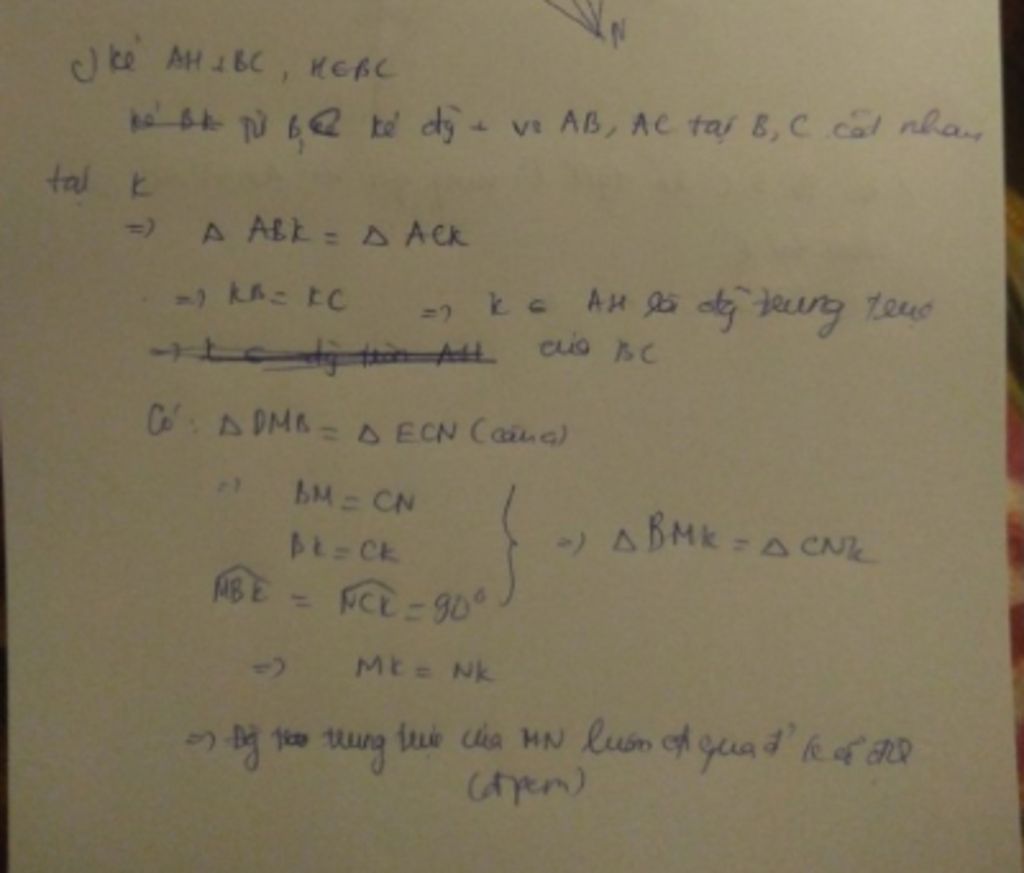 N
c) kẻ AH ⊥ BC, H ∈ BC
kẻ Bk Từ B, C kẻ đg̃ ⊥ vs AB, AC tại B, C cắt nhau
tại k
=> Δ ABK = Δ ACK
=> KB = KC => k ∈ AH là đg̃ trung trực
của BC
Có: Δ DMB = Δ ECN (câu a)
=> BM = CN
BK = CK => Δ BMK = Δ CNK
MBK = NCK = 90°
=> MK = NK
=> Đg̃ trung trực của MN luôn đi qua đ' k cố định
(đpcm)